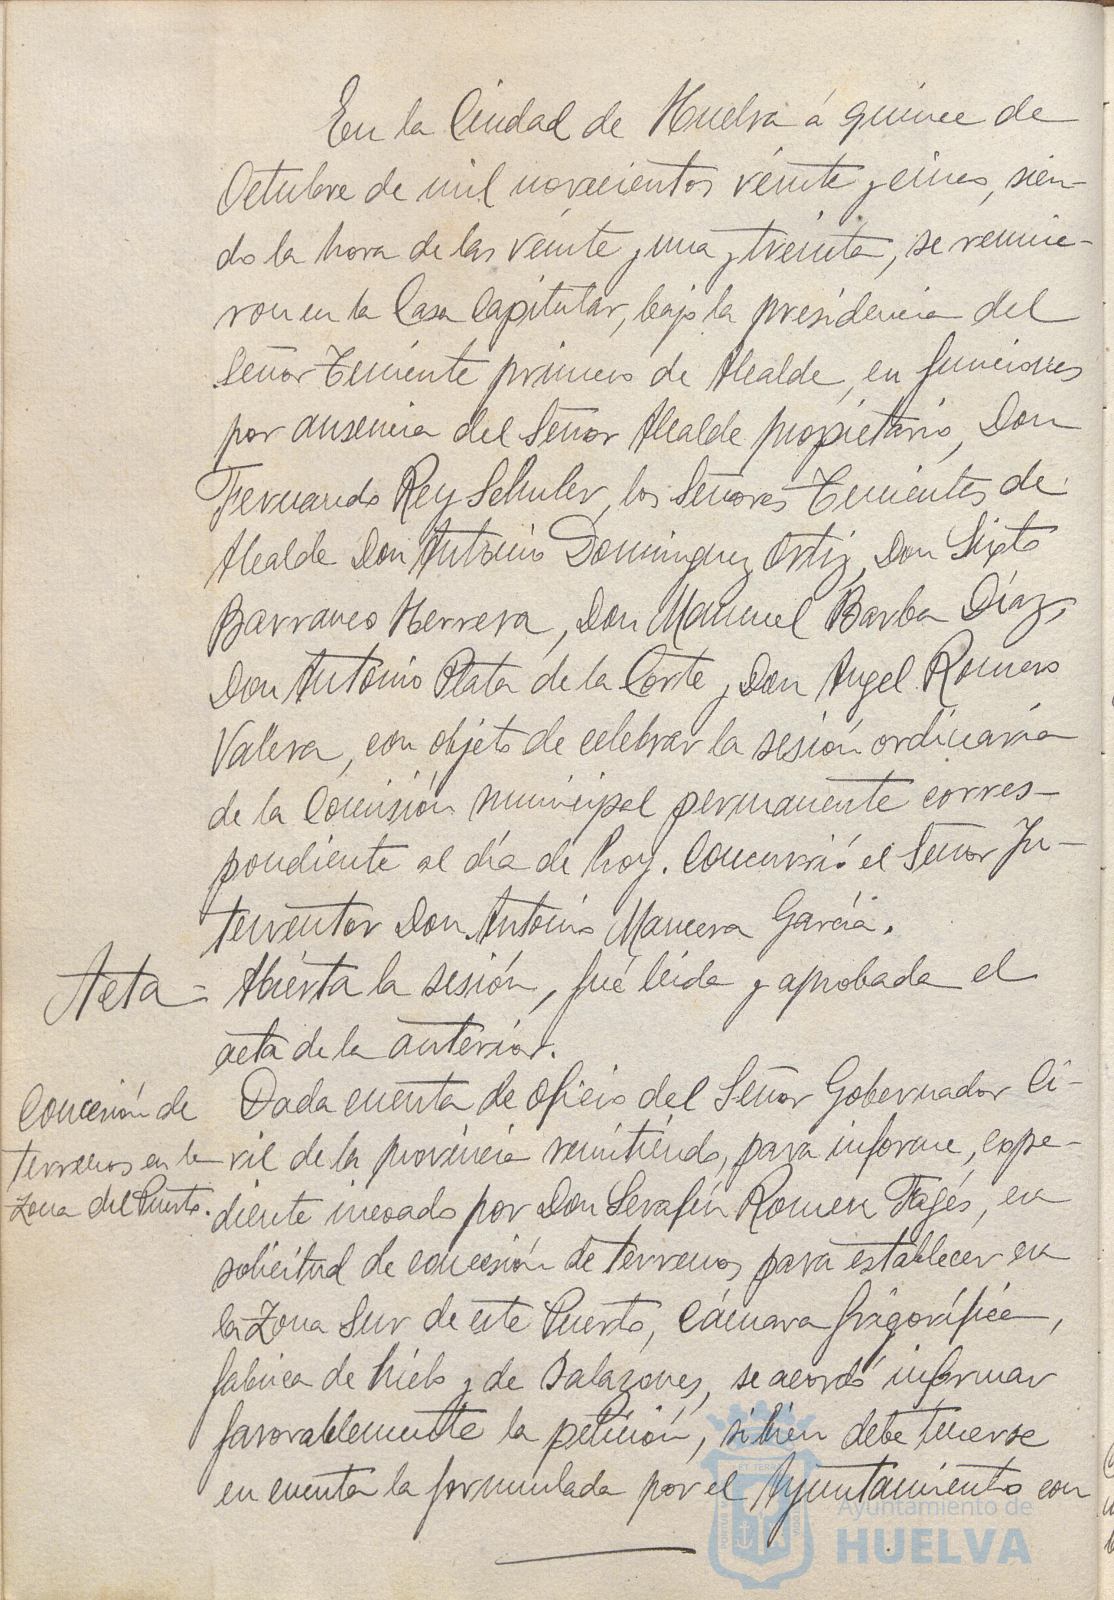 En la Ciudad de Huelva á quince de
Octubre de mil novecientos veinte y cinco, sien-
do la hora de las veinte y una y treinta, se reunie-
ron en la Casa Capitular, bajo la presidencia del
Señor Teniente primero de Alcalde, en funciones
por ausencia del Señor Alcalde propietario, Don
Fernando Rey Schuler, los Señores Tenientes de
Alcalde Don Antonio Dominguez Ortiz, Don Sixto
Barranco Herrera, Don Manuel Barba Díaz,
Don Antonio Plata de la Corte y Don Angel Romero
Valera, con objeto de celebrar la sesión ordinaria
de la Comisión municipal permanente corres-
pondiente al día de hoy. Concurrió el Señor In-
terventor Don Antonio Mancera García.
Acta = Abierta la sesión, fué leida y aprobada el
acta de la anterior.
Concesión de
terrenos en la
zona del Puerto.
Dada cuenta de oficio del Señor Gobernador Ci-
vil de la provincia remitiendo, para informe, expe-
diente incoado por Don Serafín Romeu Fagés, en
solicitud de concesión de terrenos para establecer en
la Zona Sur de este Puerto, Cámara frigorífica,
fabrica de hielo y de Salazones, se acordó informar
favorablemente la petición, si bien debe tenerse
en cuenta la formulada por el Ayuntamiento con
Ayuntamiento de
HUELVA